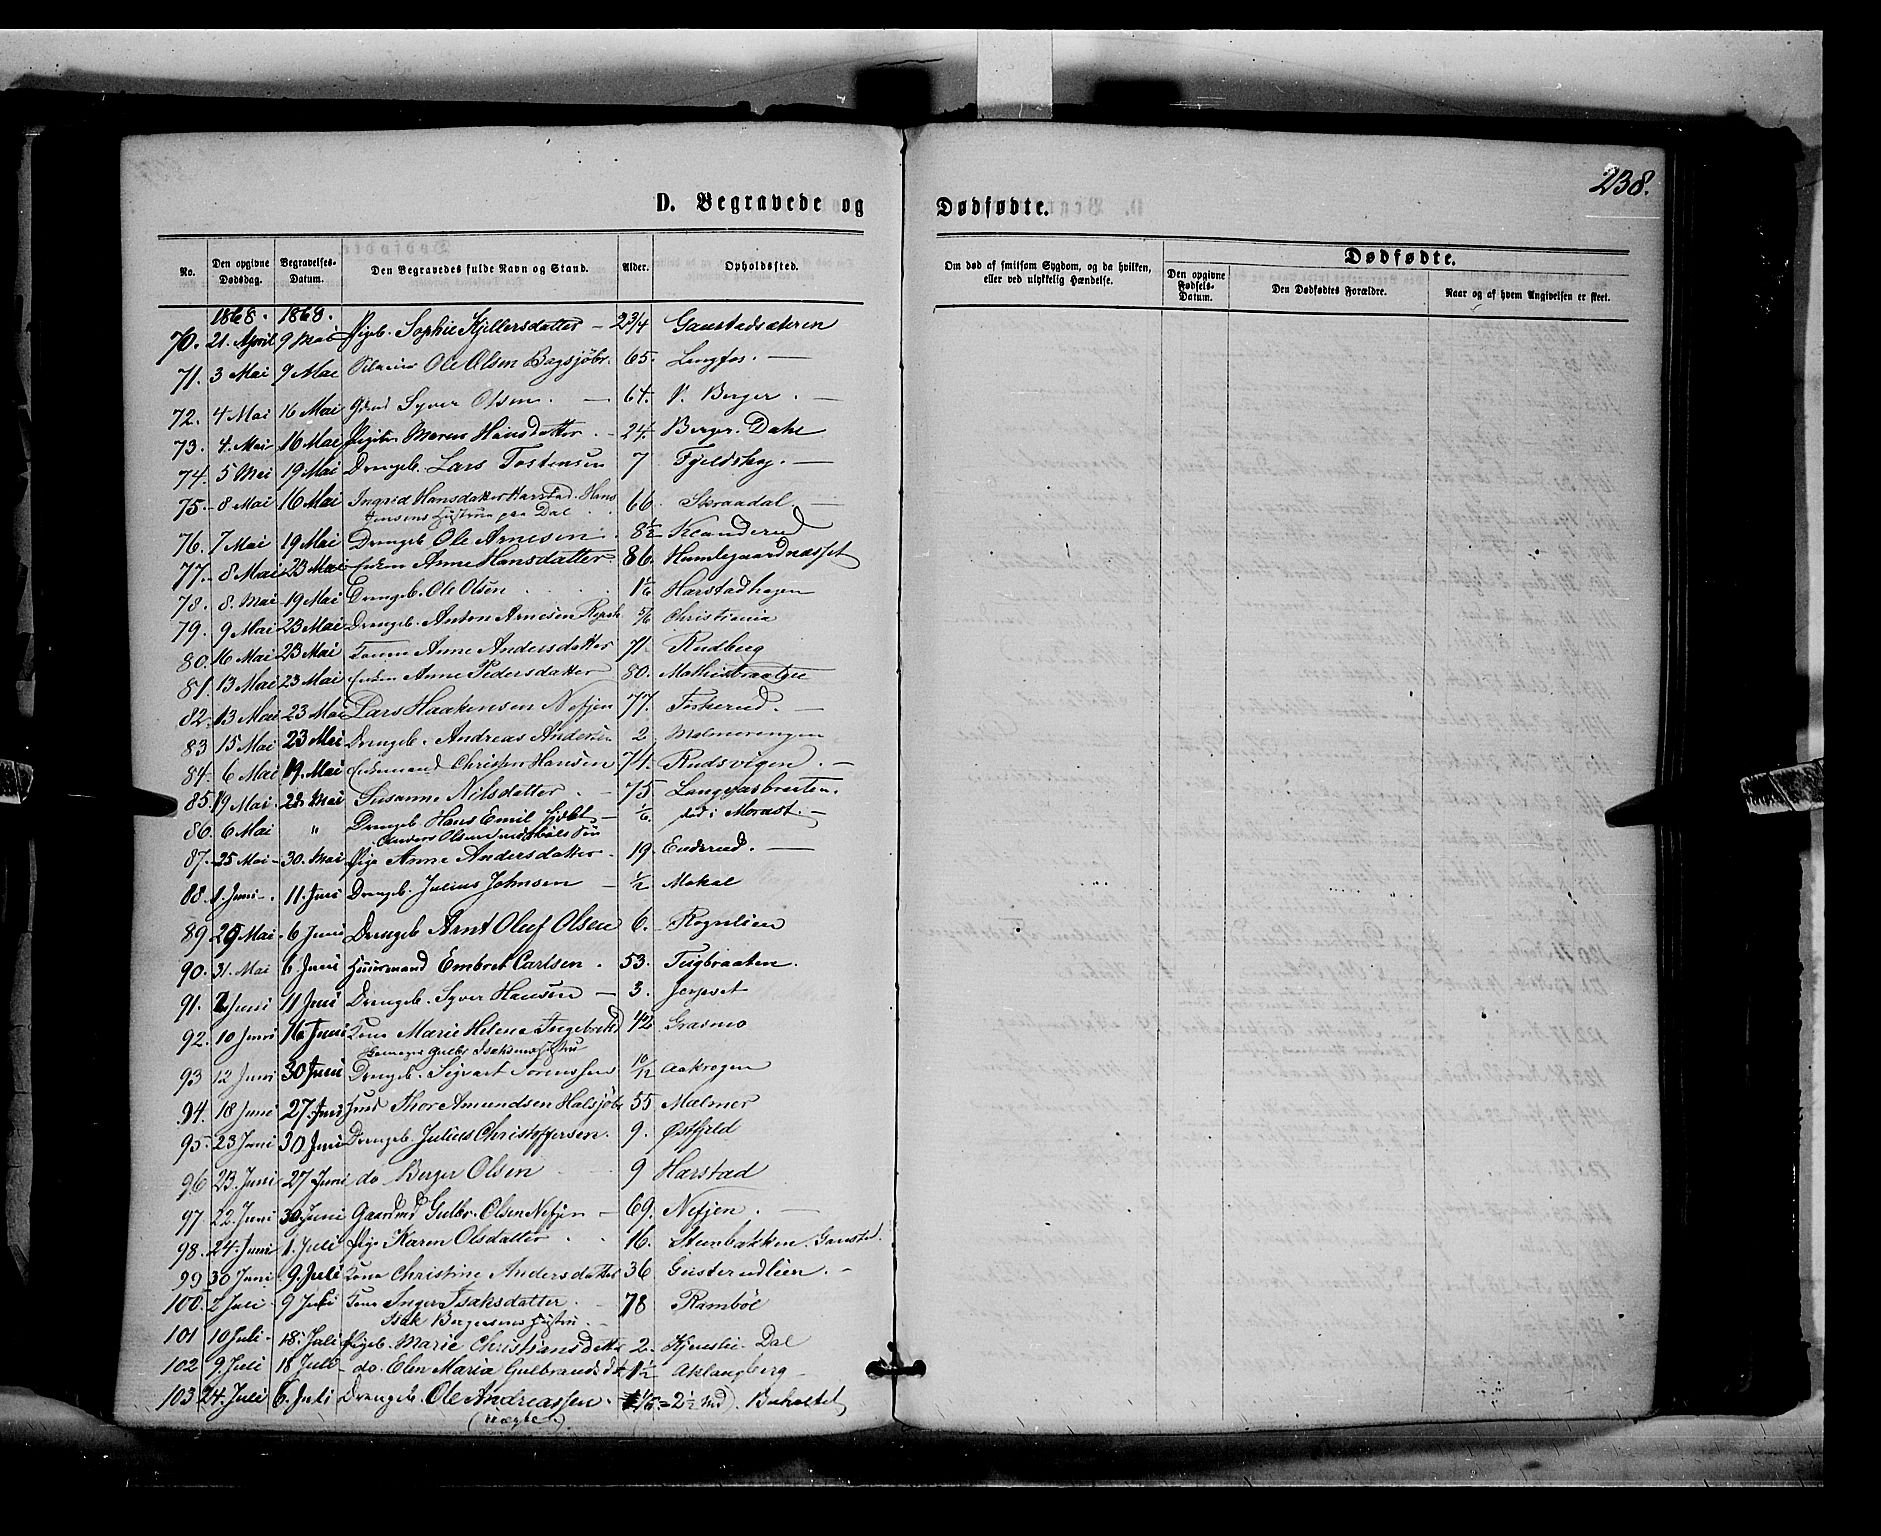 238.
D. Begravede og Dødfødte.
No. Den opgivne Dødsdag. Begravelses-Datum. Den Begravedes fulde Navn og Stand. Alder. Opholdssted. Om død af smitsom Sygdom, og da hvilken, eller ved ulykkelig Hændelse. Dødfødte.
Den opgivne Fødsels-Datum. Den Dødfødtes Forældre. Naar og af hvem Angivelsen er skeet.
1868. 1868.
70. 21. April 9 Mai Pigeb. Sophie Kjellersdatter - 2 3/4 Gaustadsæteren
71. 3 Mai 9 Mai Ole Olsen Bagsjøbr. 65. Langfos. -
72. 4 Mai 16 Mai Syver Olsen. - 64. V. Berger. -
73. 4. Mai 16 Mai Hansdatter. - 24. Berger. Dahl
74. 5 Mai 19 Mai Drengeb. Lars Tostensen 7 Fjeldshag. -
75. 8 Mai 16 Mai Ingrid Hansdatter Harstad. Hans 66. Skraadal. -
Jensens Hustru paa Dal
76. 7 Mai 19 Mai Drengeb Ole Arnesen. 8 1/2 Kланderud
77. 8 Mai 23 Mai Enken Anne Hansdatter 86. Humlegaardnæsset
78. 8. Mai 19 Mai Drengeb. Ole Olsen 1 1/6 Harstadhagen
79. 9 Mai 23 Mai Drengeb. Anton Arnesen 5/6 Christiania
80. 16 Mai 23 Mai Anne Andersdatter 71. Rudberg
81. 13 Mai 23 Mai Enken Anne Pedersdatter 80. Mathisbraaten
82. 13 Mai 23 Mai Lars Haakensen Nefjen 77. Foskerud. -
83 15 Mai 23 Mai Drengeb. Andreas Andersen 2 Malmerengen
84. 6 Mai 19. Mai Christen Hansen 74. Rudsvigen. -
85. 19 Mai 28 Mai Susanne Nilsdatter. - 75 Langaasbraaten.
86. 6 Mai " Drengeb Hans Emil - 1/6. død i Morast. -
Anders Olsen Søn
87. 25 Mai 30. Mai Pige Anne Andersdatter. 19. Enderud. -
88. 1. Juni. 11. Juni Drengeb. Julius Johnsen - 1/2 Mokal
89 29 Mai 6 Juni Drengeb Arnt Oluf Olsen 6. Rognlien
90. 31. Mai 6 Juni Huusmand Embret Carlsen. 53. Tugbraaten.
91. 2 Juni 11 Juni Drengeb. Syver Hansen - 3. Jerpset
92. 10 Juni 16 Juni Kone Marie Helene Ingebretsd 42 Grasmo
Gulbr. Isaksens Hustru
93 12 Juni 30 Juni Drengeb. Sigvart Sørenssen 10/12 Aakrogen
94. 18 Juni 27. Juni Thor Amundsen Halsjøbr 55 Malmer
95. 23 Juni 30 Juni Drengeb. Julius Christoffersen. 9. Østfjeld
96 23. Juni 27 Juni do Berger Olsen 9 Harstad
97 22. Juni 30 Juni Gaardmd Gulbr. Olsen Nefjen - 69. Nefjen. -
98. 24. Juni 1. Juli Pige Karen Olsdatter 16. Steenbakken. Gaustad.
99 30 Juni 9. Juli Kone Christine Andersdatter 36 Gusterudlien. -
100. 2 Juli 9 Juli Kone Inger Isaksdatter. 78 Rambøl
Isak Bergersens Hustru.
101 10 Juli. 18. Juli Pigeb. Marie Christiansdatt 2. Dal
102 9 Juli 18 Juli do. Elen Maria Gulbrandsdt 1 1/2 Aklangberg
103 24. Juli 6. Juli Drengeb. Ole Andreassen. 1/5 = 2 1/2 Md. Buholtet
(uægte).